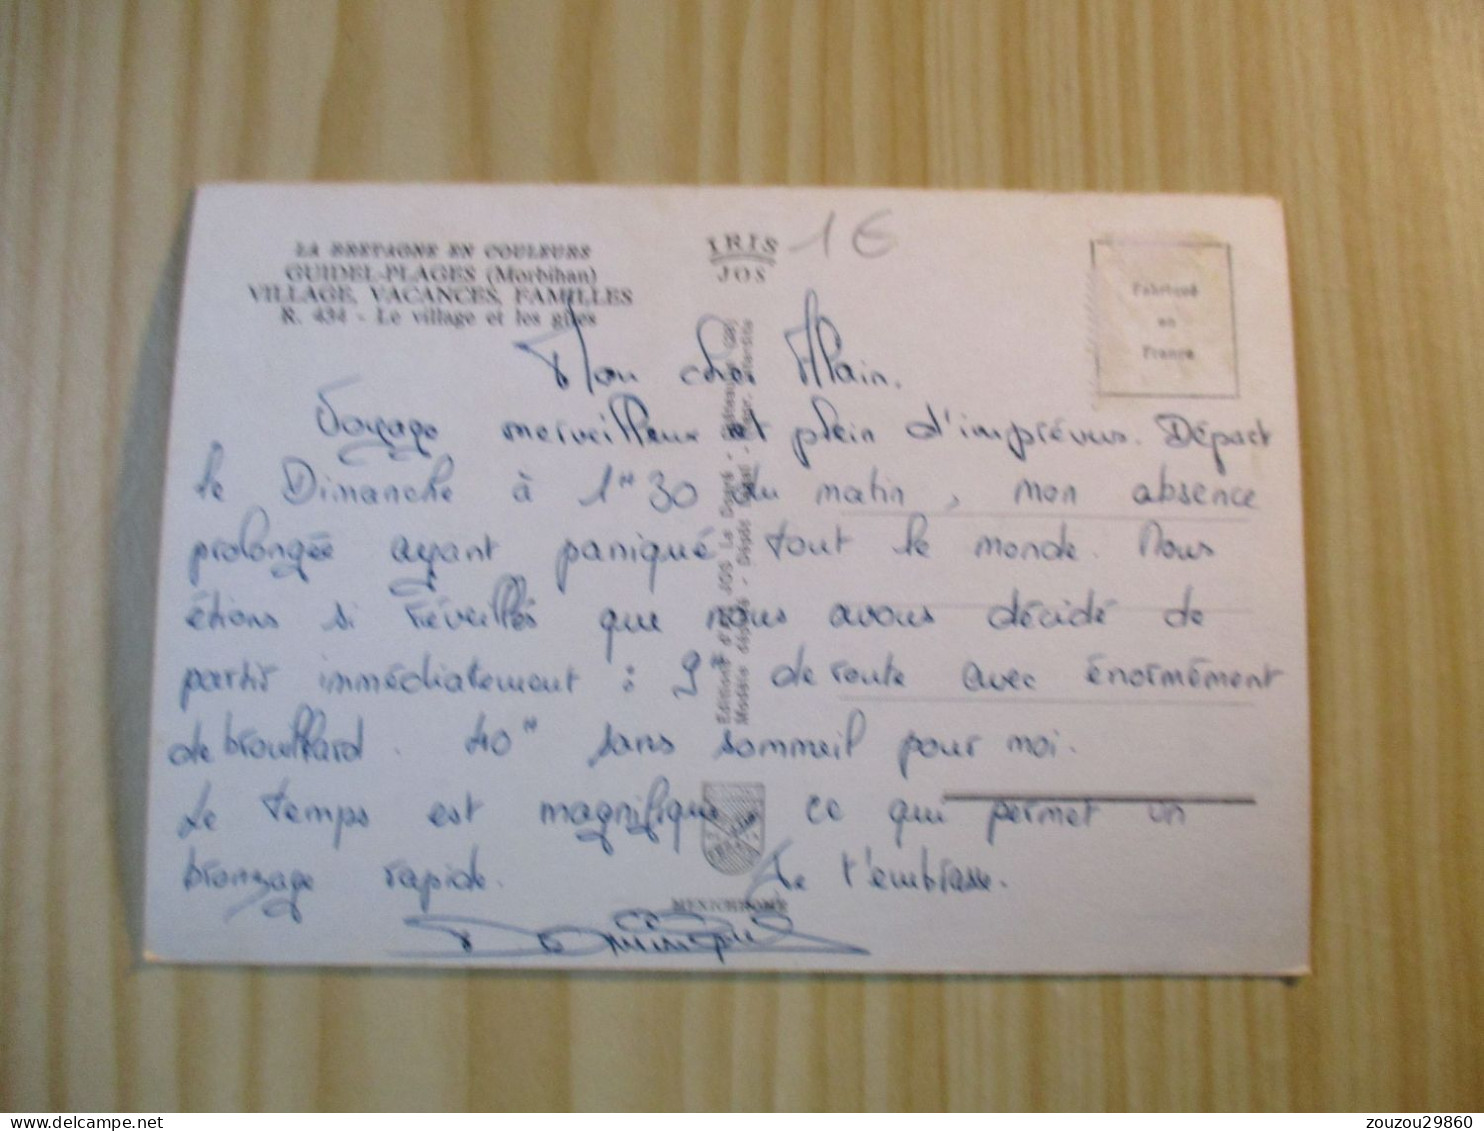 LA BRETAGNE EN COULEURS
GUIDEL-PLAGES (Morbihan)
VILLAGE, VACANCES, FAMILLES
R. 434 - Le village et les gîtes
IRIS
JOS
1€
Fabriqué
en
France
Mon cher Alain.
Voyage merveilleux et plein d'imprévus. Départ
le Dimanche à 1H30 du matin, mon absence
prolongée ayant paniqué tout le monde. Nous
étions si réveillés que nous avons décidé de
partir immédiatement : 9H de route avec énormément
de brouillard. 40H sans sommeil pour moi.
Le temps est magnifique ce qui permet un
bronzage rapide. Je t'embrasse.
Dominique
Editions d'Art JOS Le Doaré - Châteaulin (29)
Modèle déposé - Dépôt légal - Repr. interdite
MEXICHROME
zouzou29860